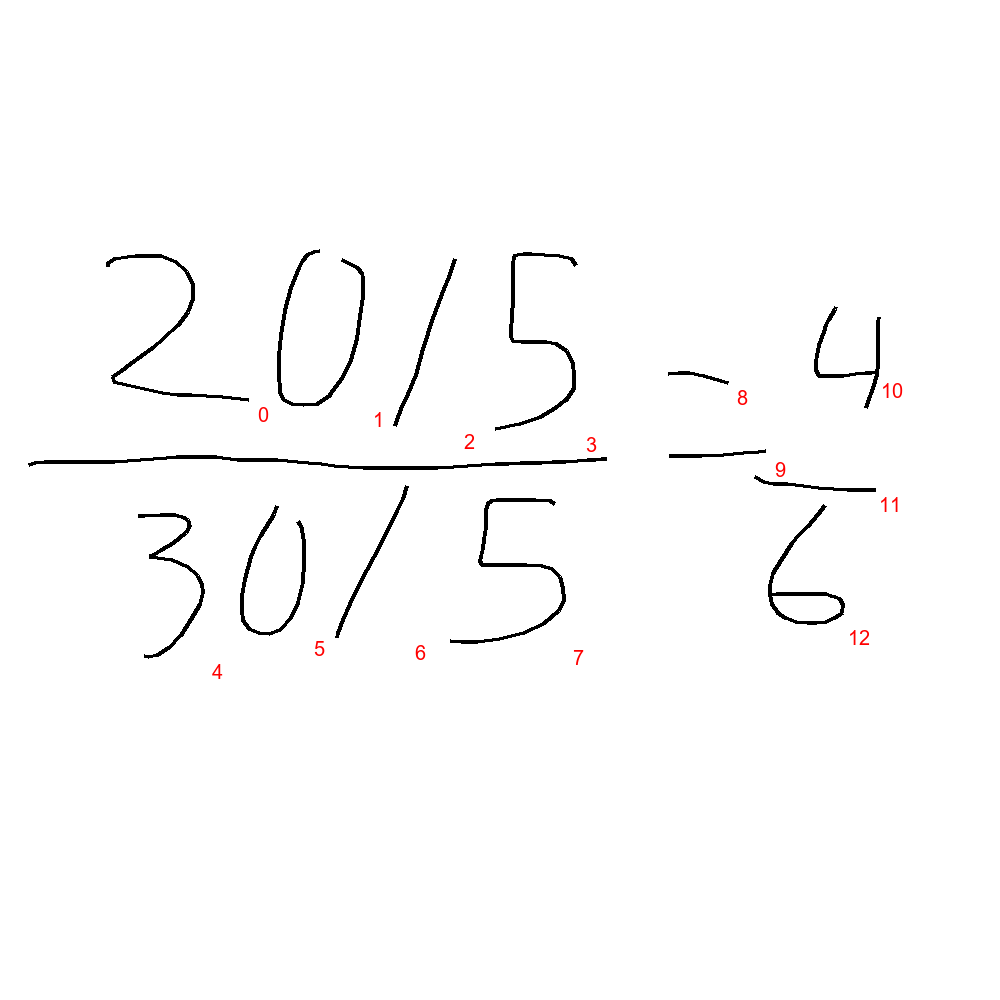 20/5 = 4
30/5 6
0 1 2 3 4 5 6 7 8 9 10 11 12